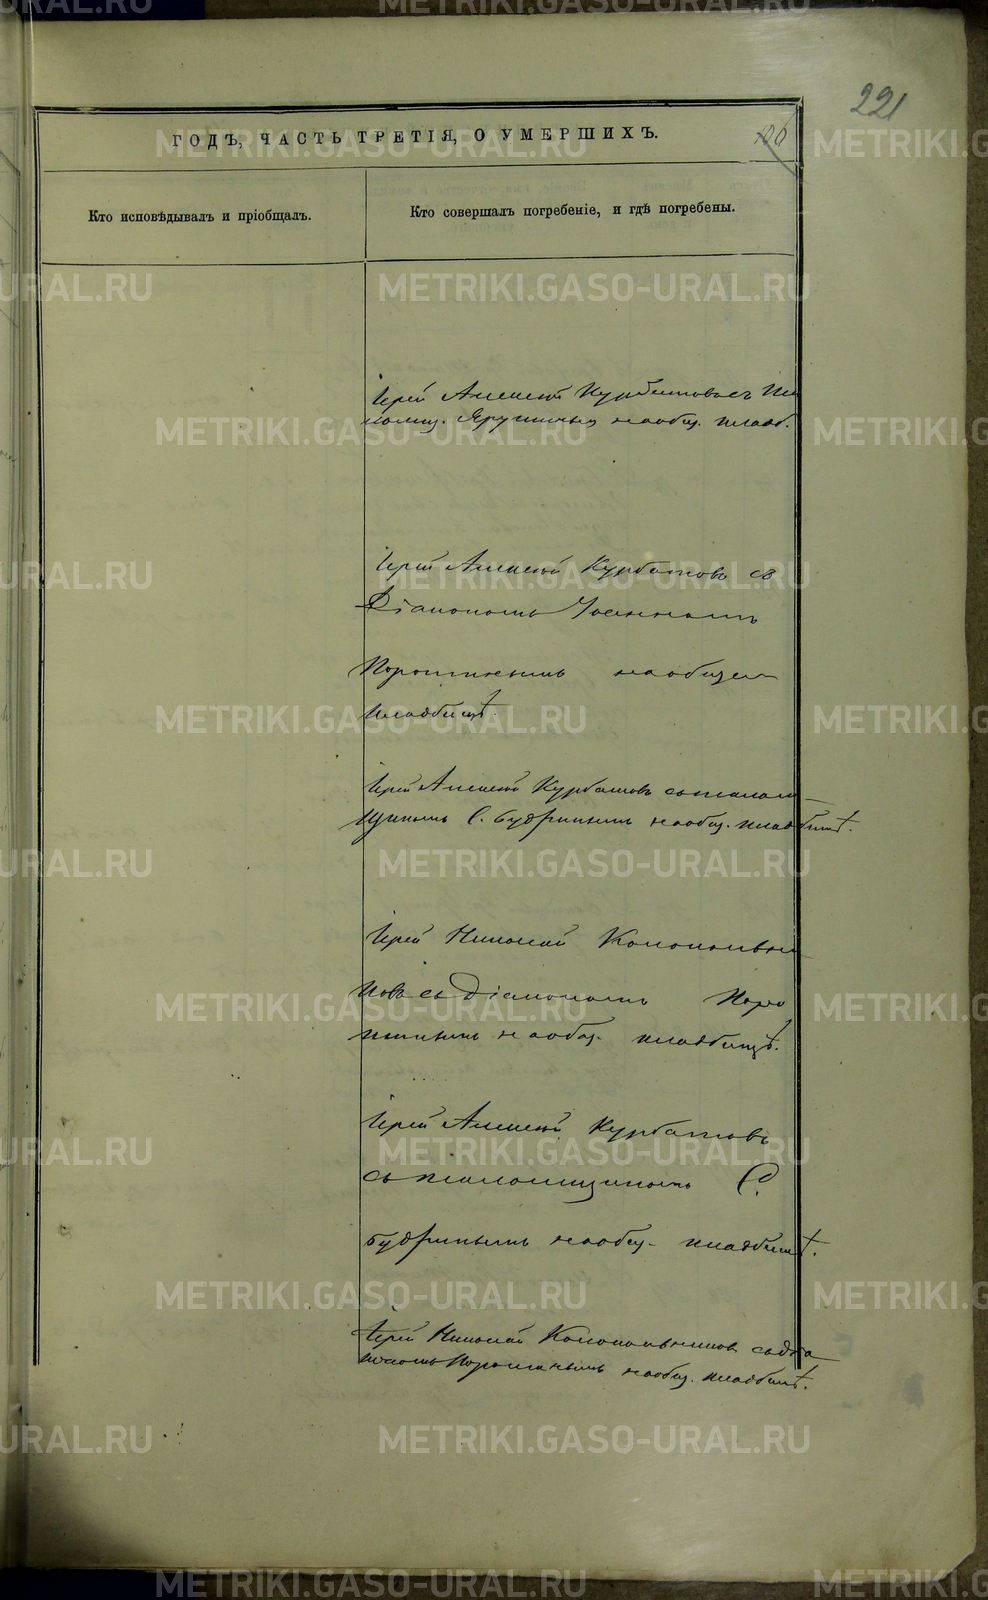 221
ГОДЪ, ЧАСТЬ ТРЕТІЯ, О УМЕРШИХЪ.
Кто исповѣдывалъ и пріобщалъ.
Кто совершалъ погребеніе, и гдѣ погребены.
Іерей Алексѣй Курбатовъ съ
на общ. кладб.
Іерей Алексѣй Курбатовъ съ
Діакономъ Іоанномъ
Короткинымъ на общем
кладбищѣ.
Іерей Алексѣй Курбатовъ съ псалом
щикомъ С. Будринымъ на общ. кладбищѣ.
Іерей Николай Колокольни
ковъ съ Діакономъ
на общ. кладбищѣ.
Іерей Алексѣй Курбатовъ
съ псаломщикомъ С.
Будринымъ на общ. кладбищѣ.
Іерей Николай Колокольниковъ съ діа
кономъ на общ. кладбищѣ.
METRIKI.GASO-URAL.RU